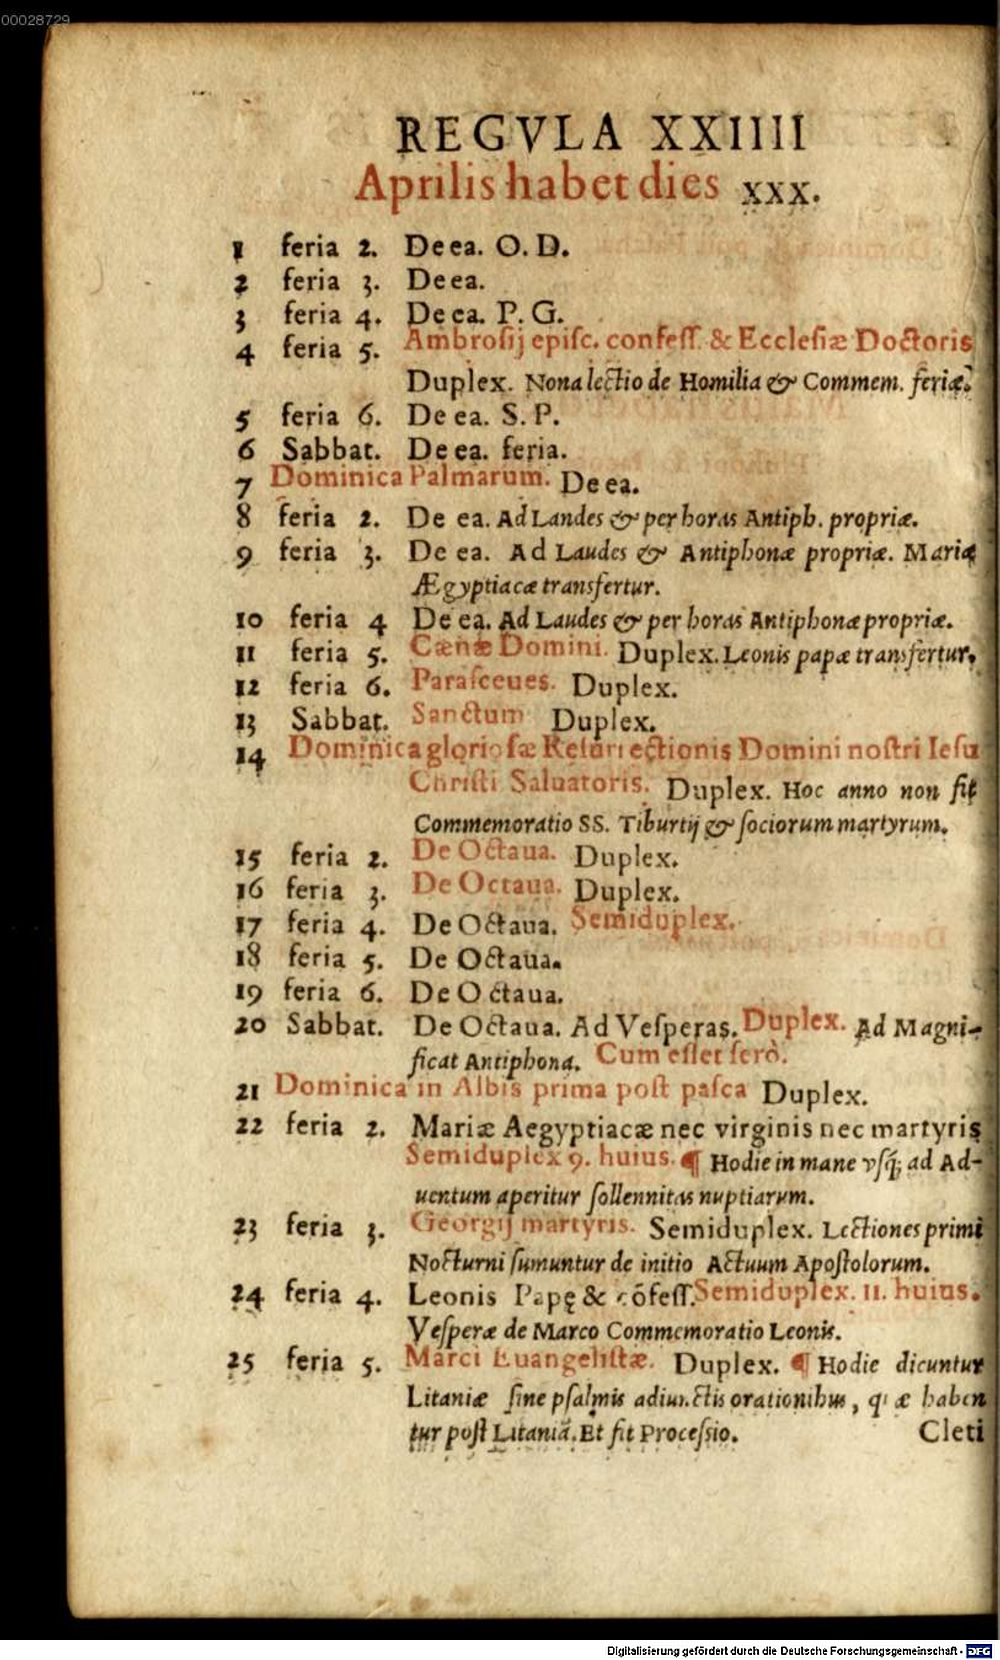 00028729
REGVLA XXIIII
Aprilis habet dies xxx.
1 feria 2. De ea. O. D.
2 feria 3. De ea.
3 feria 4. De ea. P. G.
4 feria 5. Ambroſij epiſc. confeſſ. & Eccleſiæ Doctoris
Duplex. Nona lectio de Homilia & Commem. feriæ.
5 feria 6. De ea. S. P.
6 Sabbat. De ea. feria.
7 Dominica Palmarum. De ea.
8 feria 2. De ea. Ad Landes & per horas Antiph. propriæ.
9 feria 3. De ea. Ad Laudes & Antiphonæ propriæ. Mariæ
Ægyptiacæ transfertur.
10 feria 4 De ea. Ad Laudes & per horas Antiphonæ propriæ.
11 feria 5. Cænæ Domini. Duplex. Leonis papæ transfertur.
12 feria 6. Paraſceues. Duplex.
13 Sabbat. Sanctum Duplex.
14 Dominica glorioſæ Reſurrectionis Domini noſtri Ieſu
Chriſti Saluatoris. Duplex. Hoc anno non fit
Commemoratio SS. Tiburtij & ſociorum martyrum.
15 feria 2. De Octaua. Duplex.
16 feria 3. De Octaua. Duplex.
17 feria 4. De Octaua. Semiduplex.
18 feria 5. De Octaua.
19 feria 6. De Octaua.
20 Sabbat. De Octaua. Ad Veſperas. Duplex. Ad Magni-
ficat Antiphona. Cum eſſet ſerò.
21 Dominica in Albis prima poſt paſca Duplex.
22 feria 2. Mariæ Aegyptiacæ nec virginis nec martyris
Semiduplex 9. huius. ¶ Hodie in mane vſq; ad Ad-
uentum aperitur ſollennitas nuptiarum.
23 feria 3. Georgij martyris. Semiduplex. Lectiones primi
Nocturni ſumuntur de initio Actuum Apoſtolorum.
24 feria 4. Leonis Papę & cõfeſſ. Semiduplex. 11. huius.
Veſperæ de Marco Commemoratio Leonis.
25 feria 5. Marci Euangeliſtæ. Duplex. ¶ Hodie dicuntur
Litaniæ ſine pſalmis adiunctis orationibus, quæ haben
tur poſt Litaniã. Et fit Proceſsio. Cleti
Digitalisierung gefördert durch die Deutsche Forschungsgemeinschaft - DFG